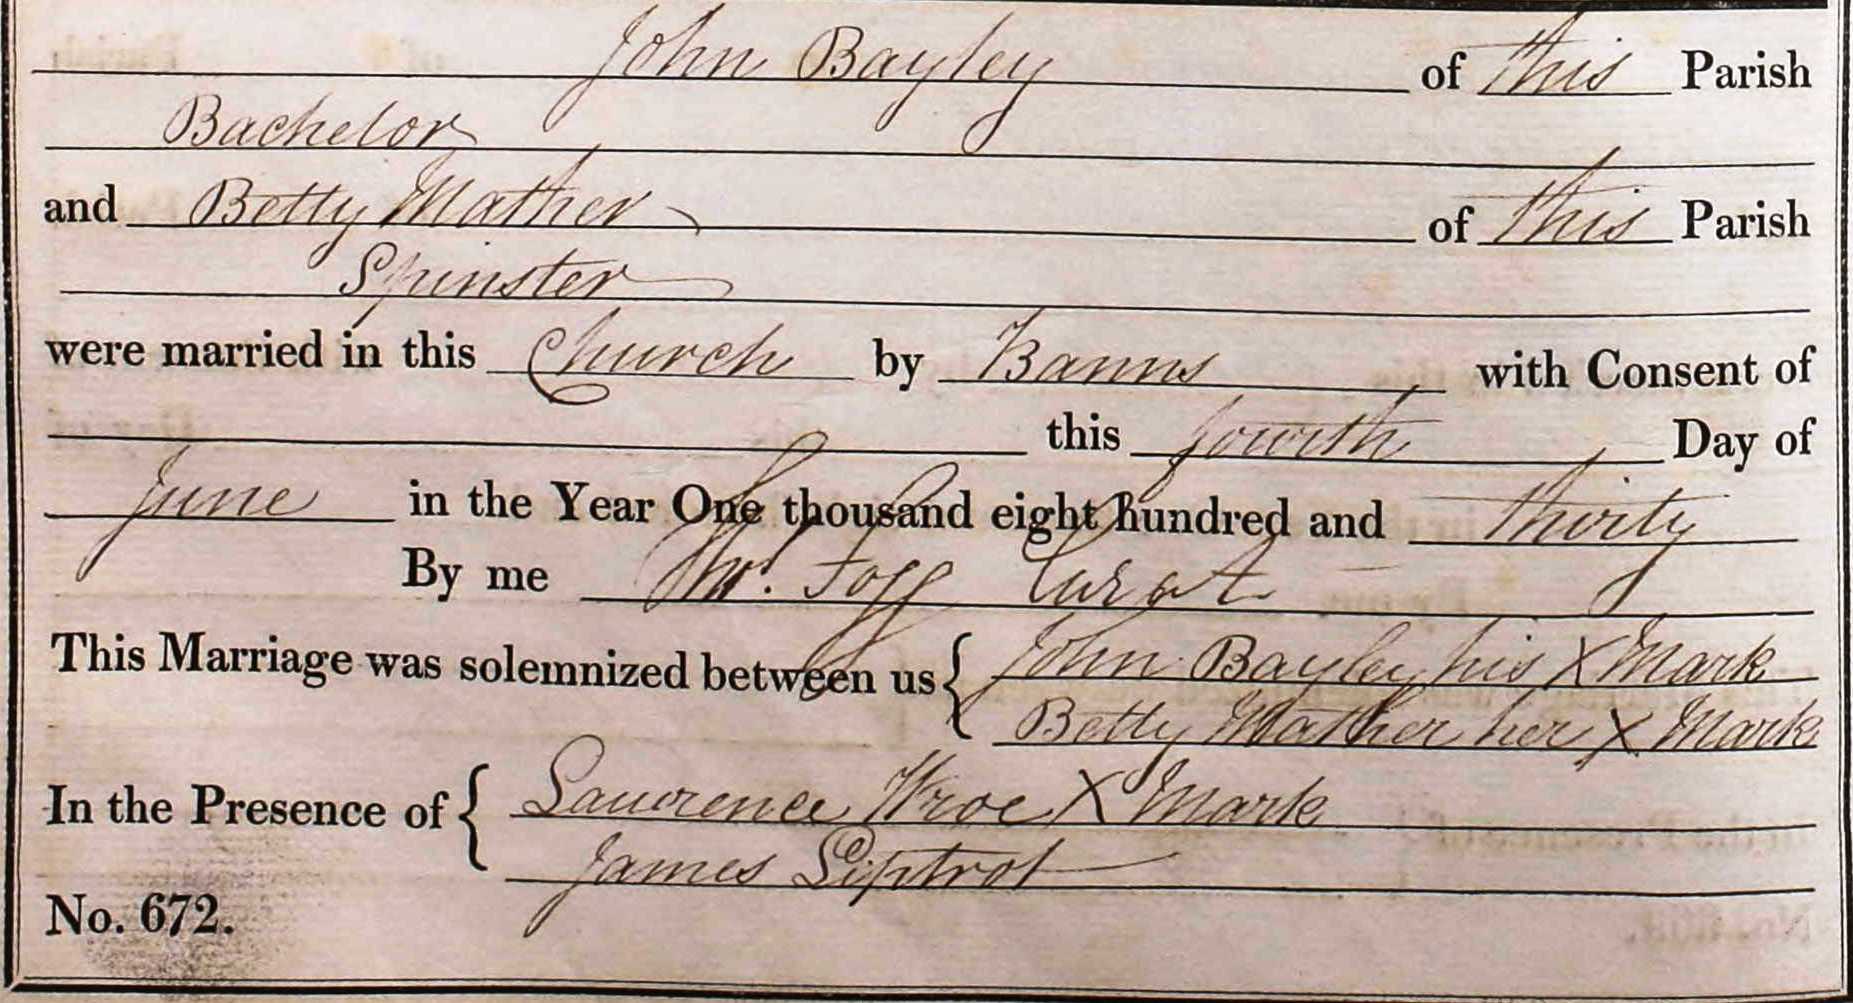 John Bayley of this Parish
Bachelor
and Betty Mather of this Parish
Spinster
were married in this Church by Banns with Consent of
this fourth Day of
June in the Year One thousand eight hundred and thirty
By me Thos. Fogg Curate
This Marriage was solemnized between us { John Bayley his X Mark
Betty Mather her X Mark
In the Presence of { Lawrence Wroe X Mark
James Liptrot
No. 672.